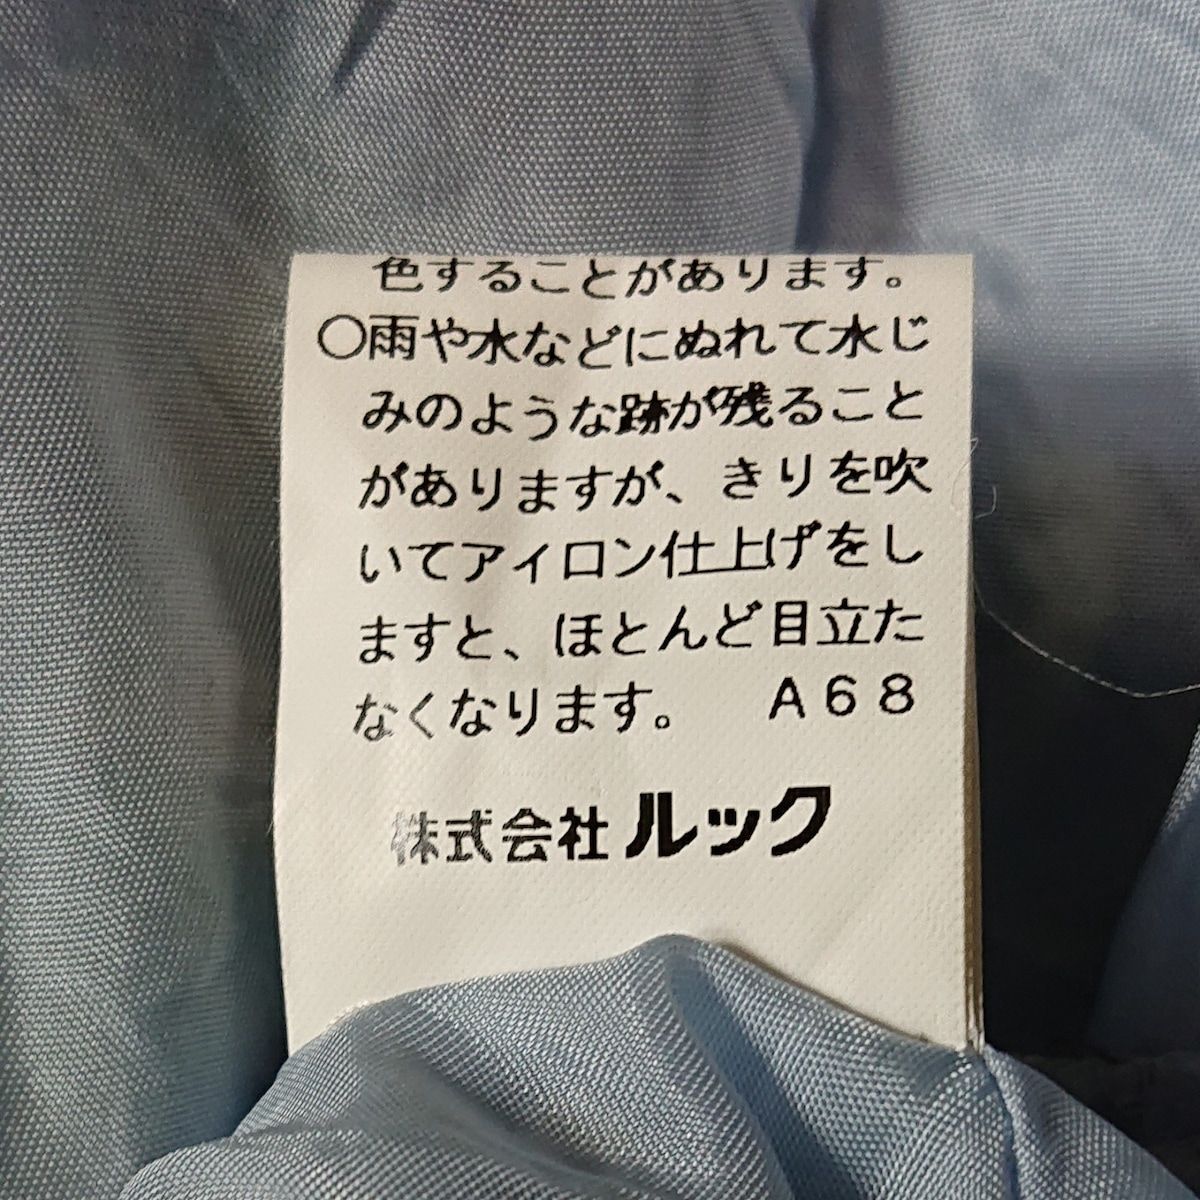 色することがあります。
〇雨や水などにぬれて水じ
みのような跡が残ること
がありますが、きりを吹
いてアイロン仕上げをし
ますと、ほとんど目立た
なくなります。　A68
株式会社ルック